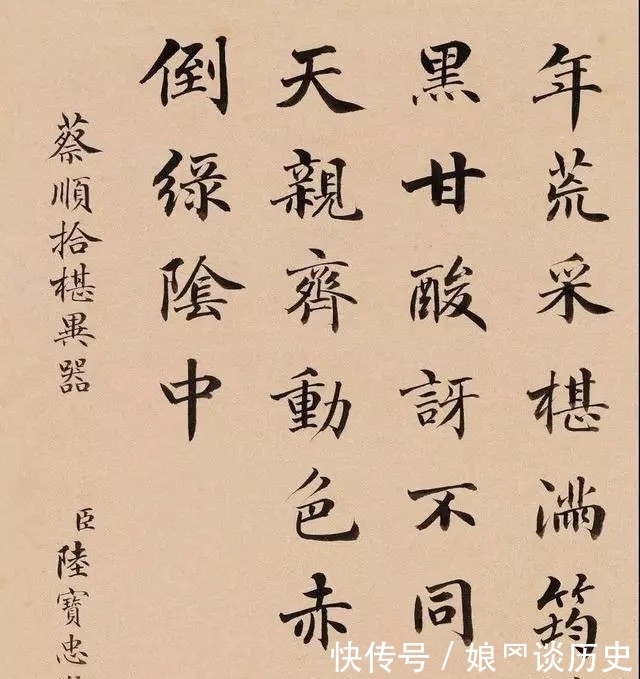 年荒采椹滿筠
黑甘酸訝不同
天親齊動色赤
倒綠陰中
蔡順拾椹異器
臣陸寶忠
快传号 / 娘罓谈历史